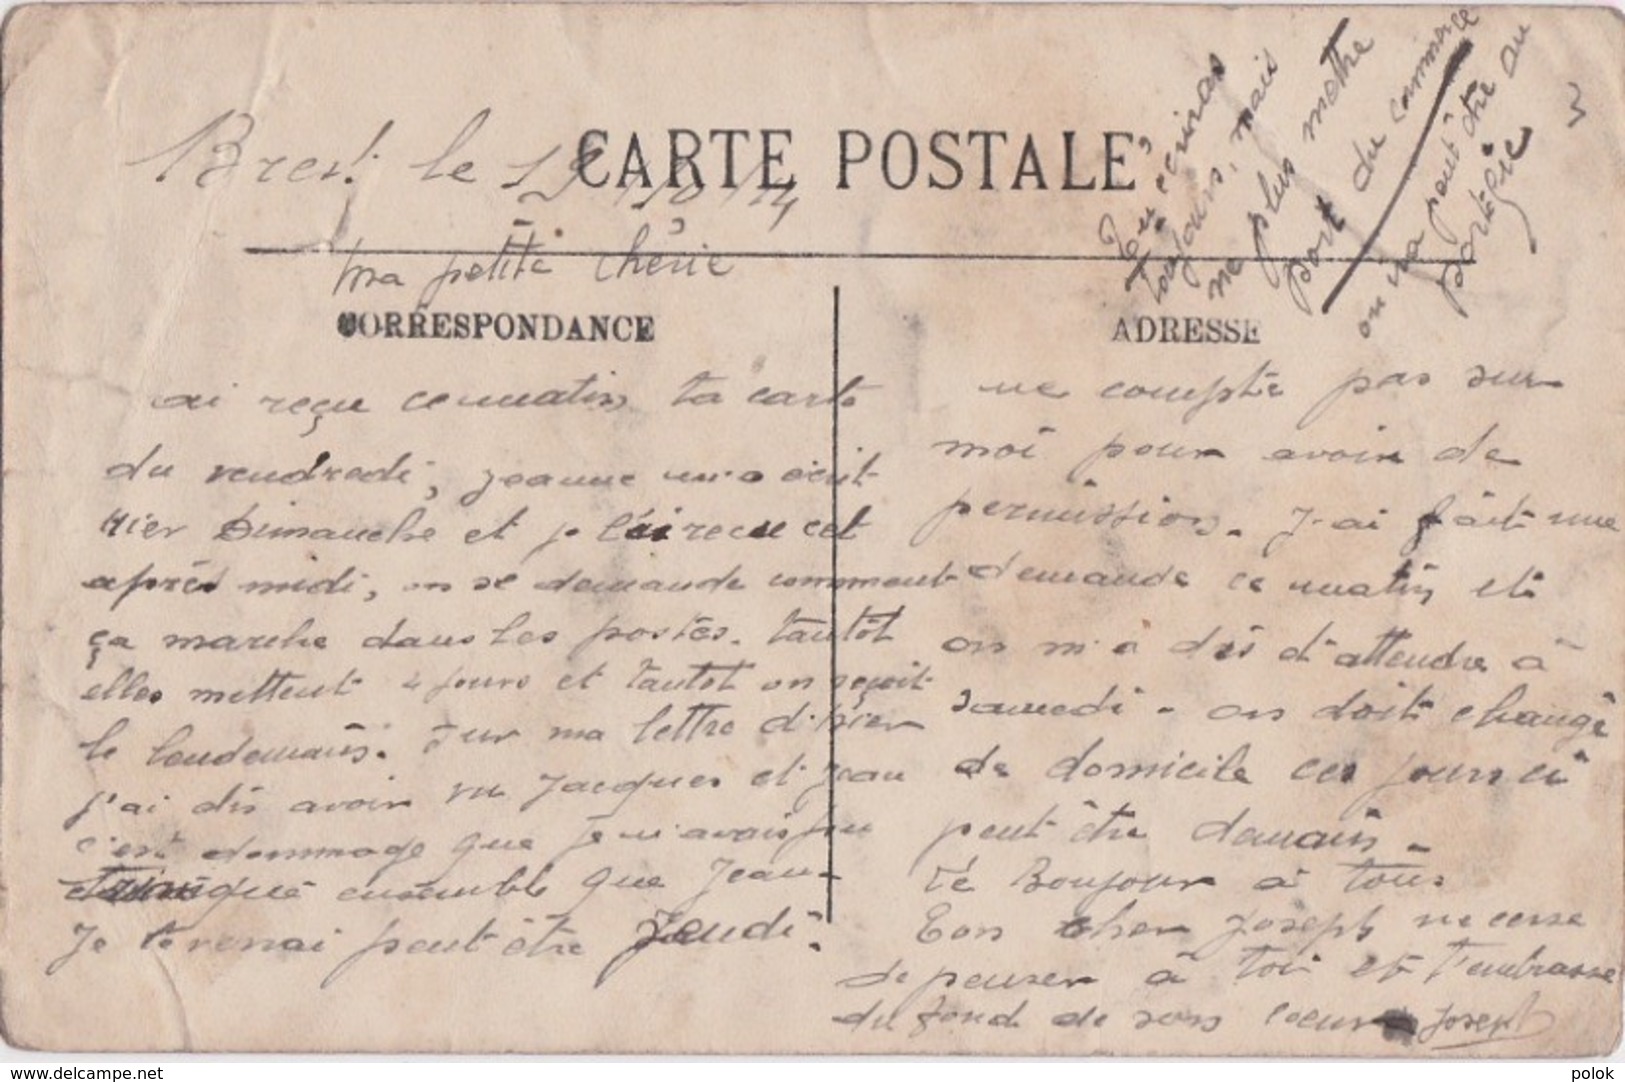 Brest le 19/10/14
CARTE POSTALE
ma petite cherie
CORRESPONDANCE
ai reçu ce matin ta carte
du vendredi, jeanne m'a écrit
Hier Dimanche et je l'ai recu cet
après midi, on se demande comment
ça marche dans les postes. tantôt
elles mettent 2 jours et tantot on reçoit
le lendemain. Sur ma lettre d'hier
j'ai dis avoir vu Jacques et jean
c'est dommage que je n'avais pu
ensemble que Jean
Je te verrai peut être Jeudi.
ADRESSE
ne compte pas sur
moi pour avoir de
permission. J'ai fait une
demande ce matin et
on m'a dis d'attendre à
samedi - on doit changé
de domicile ces jours ci
peut être demain -
Bonjour à tous
Ton cher Joseph ne cesse
de penser à toi et t'embrasse
du fond de son coeur Joseph
Tu ecriras
toujours, mais
ne plus mettre
port du commerce
on ira peut être au
portzic
3
www.delcampe.net
polok